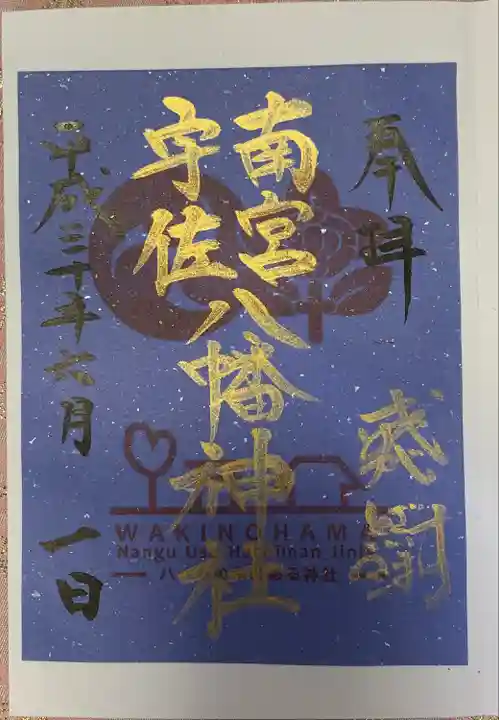 奉拝
感謝
南宮
宇佐
八幡神社
平成三十年六月一日
WAKINOHAMA
Nangu Usa Hachiman Jinja